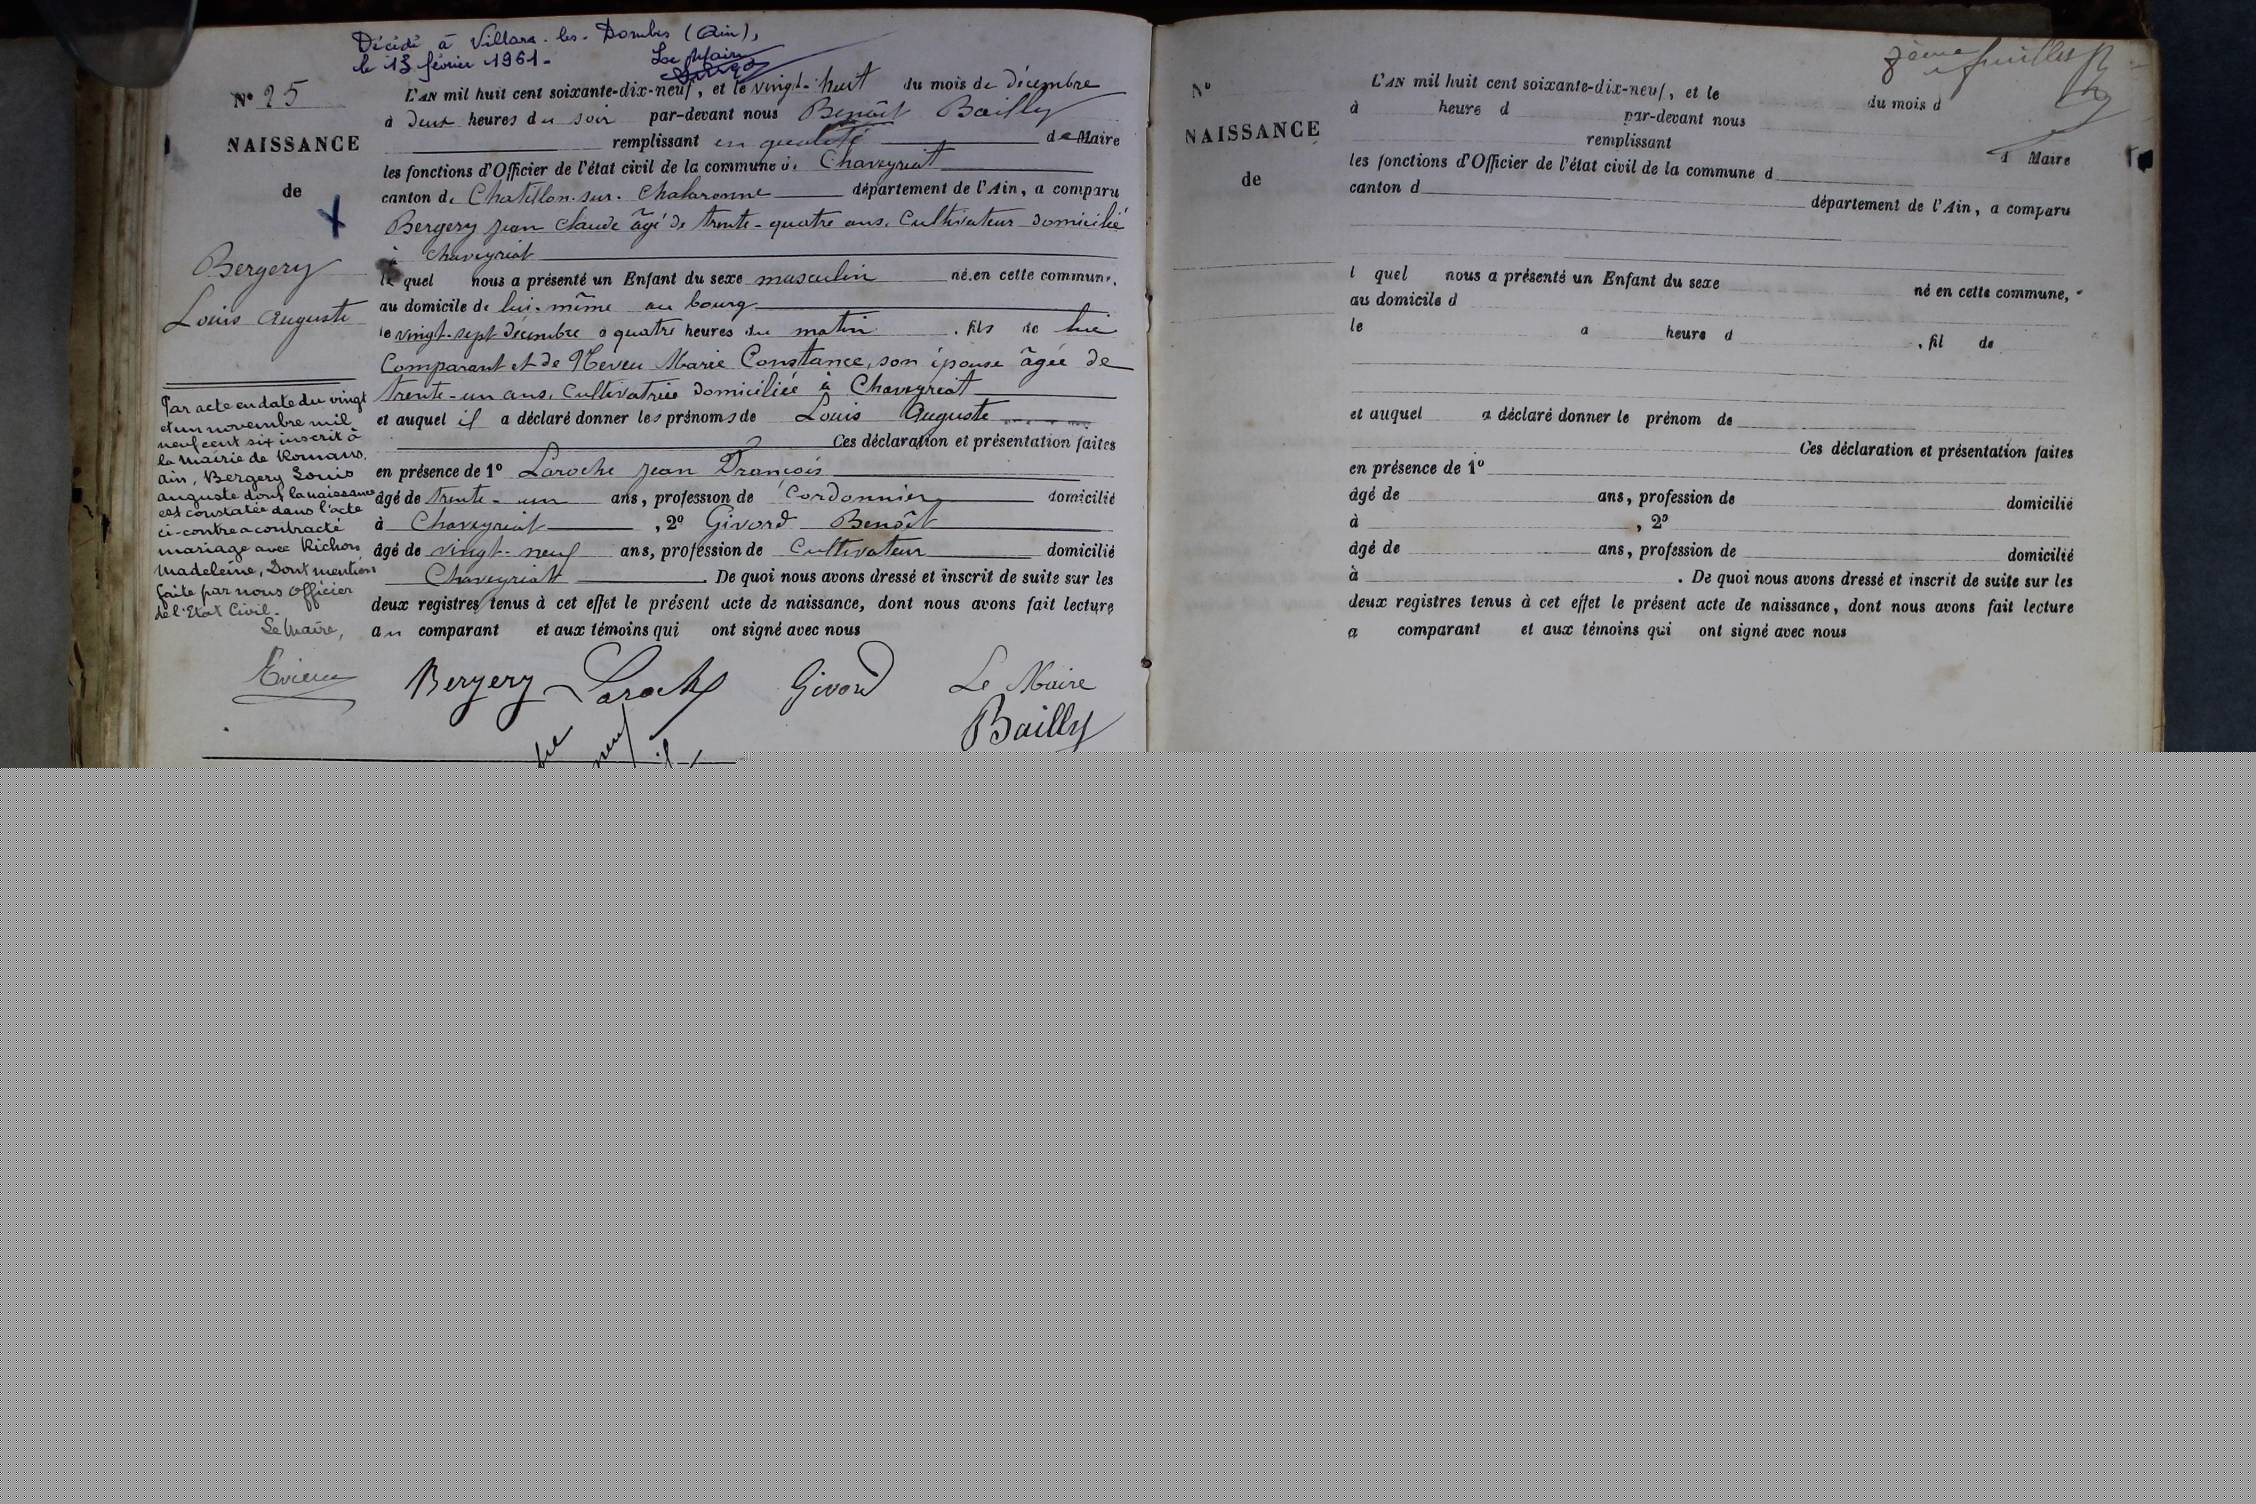 Décédé à Villars-les-Dombes (Ain),
le 13 février 1961.
Le Maire
N° 25
NAISSANCE
de
Bergery
Louis Auguste
L'AN mil huit cent soixante-dix-neuf, et le vingt-huit du mois de décembre
à deux heures du soir par-devant nous Benoît Bailly
remplissant en qualité de Maire
les fonctions d'Officier de l'état civil de la commune de Chaveyriat
canton de Chatillon-sur-Chalaronne département de l'Ain, a comparu
Bergery jean claude âgé de trente-quatre ans, Cultivateur domicilié
à Chaveyriat
le quel nous a présenté un Enfant du sexe masculin né en cette commune,
au domicile de lui-même au bourg
le vingt-sept décembre à quatre heures du matin, fils de lui
Comparant et de Neveu Marie Constance, son épouse âgée de
trente-un ans, Cultivatrice domiciliée à Chaveyriat
et auquel il a déclaré donner les prénoms de Louis Auguste
Ces déclaration et présentation faites
en présence de 1° Laroche jean François
âgé de trente-un ans, profession de Cordonnier domicilié
à Chaveyriat, 2° Givord Benoît
âgé de vingt-neuf ans, profession de Cultivateur domicilié
Chaveyriat. De quoi nous avons dressé et inscrit de suite sur les
deux registres tenus à cet effet le présent acte de naissance, dont nous avons fait lecture
au comparant et aux témoins qui ont signé avec nous
Par acte en date du vingt
et un novembre mil
neuf cent six inscrit à
la Mairie de Romans,
ain, Bergery Louis
auguste dont la naissance
est constatée dans l'acte
ci-contre a contracté
mariage avec Richon
Madeleine, Dont mention
faite par nous Officier
de l'Etat Civil.
Le Maire,
Bergery Laroche Givord Le Maire
Bailly
N°
NAISSANCE
de
L'AN mil huit cent soixante-dix-neuf, et le du mois d
à heure d par-devant nous
remplissant d Maire
les fonctions d'Officier de l'état civil de la commune d
canton d département de l'Ain, a comparu
l quel nous a présenté un Enfant du sexe né en cette commune,
au domicile d
le a heure d , fil de
et auquel a déclaré donner le prénom de
Ces déclaration et présentation faites
en présence de 1°
âgé de ans, profession de domicilié
à , 2°
âgé de ans, profession de domicilié
à . De quoi nous avons dressé et inscrit de suite sur les
deux registres tenus à cet effet le présent acte de naissance, dont nous avons fait lecture
a comparant et aux témoins qui ont signé avec nous